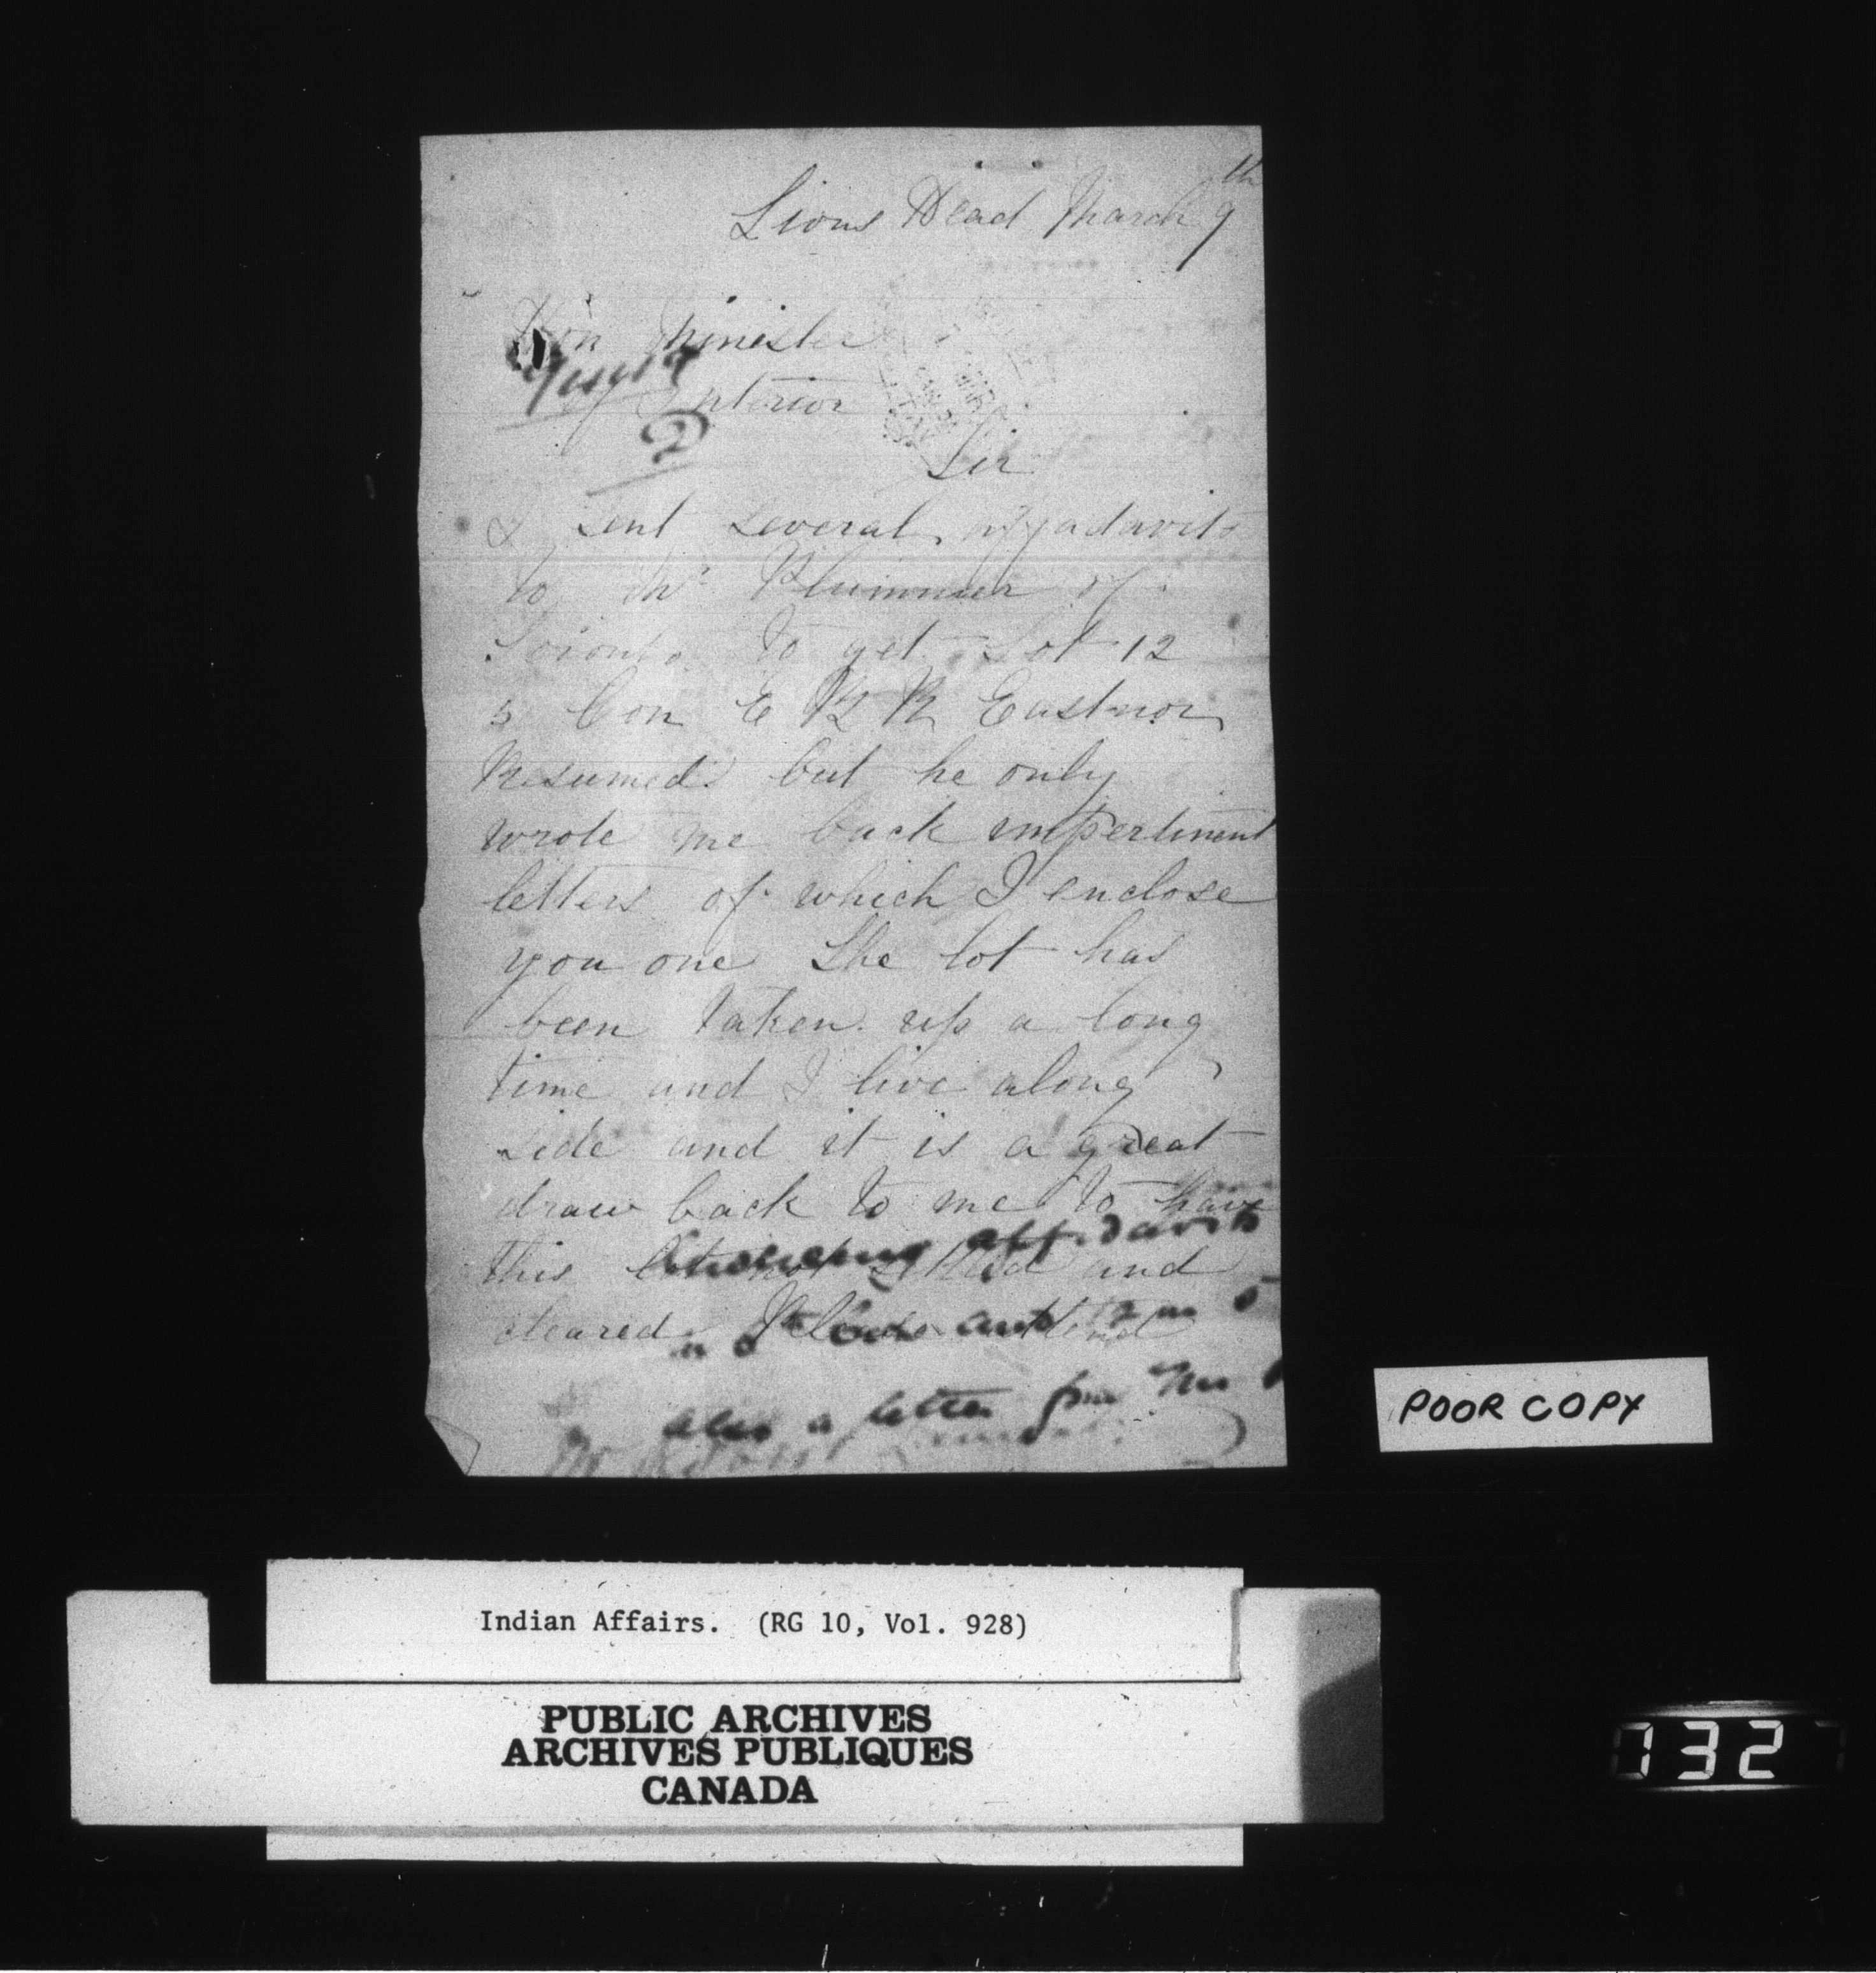 Lions Head March 9th
Hon Minister
of Interior
Sir
I sent several affadavits
to Mr Plummer of
Toronto to get Lot 12
5 Con E B R Eastnor
Resumed but he only
wrote me back impertinent
letters of which I enclose
you one The lot has
been taken up a long
time and I live along
side and it is a great
draw back to me to have
this lot not settled and
cleared Please attend
affidavits
also a letter from Mr
POOR COPY
Indian Affairs. (RG 10, Vol. 928)
PUBLIC ARCHIVES
ARCHIVES PUBLIQUES
CANADA
732